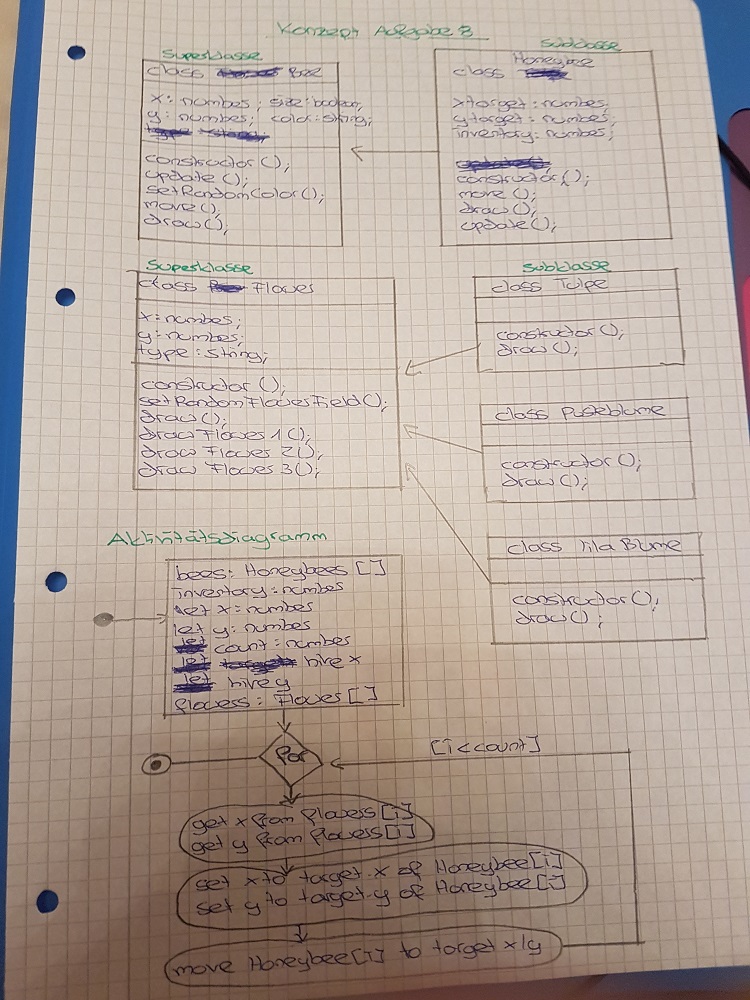 Konzept Aufgabe 8
Superklasse
class Bee
x: number; size: boolean;
y: number; color: string;
constructor();
update();
setRandomColor();
move();
draw();
Subklasse
Honeybee
class
xtarget: number;
ytarget: number;
inventory: number;
constructor();
move();
draw();
update();
Superklasse
class Flower
x: number;
y: number;
type: string;
constructor();
setRandomFlowerField();
draw();
draw Flower 1();
draw Flower 2();
draw Flower 3();
Subklasse
class Tulpe
constructor();
draw();
class Pusteblume
constructor();
draw();
class lila Blume
constructor();
draw();
Aktivitätsdiagramm
bees: Honeybees []
inventory: number
let x: number
let y: number
count: number
hive x
hive y
flowers: Flower []
For
[i < count]
get x from flowers [i]
get y from flowers [i]
set x to target.x of Honeybee [i]
set y to target.y of Honeybee [i]
move Honeybee [i] to target x/y